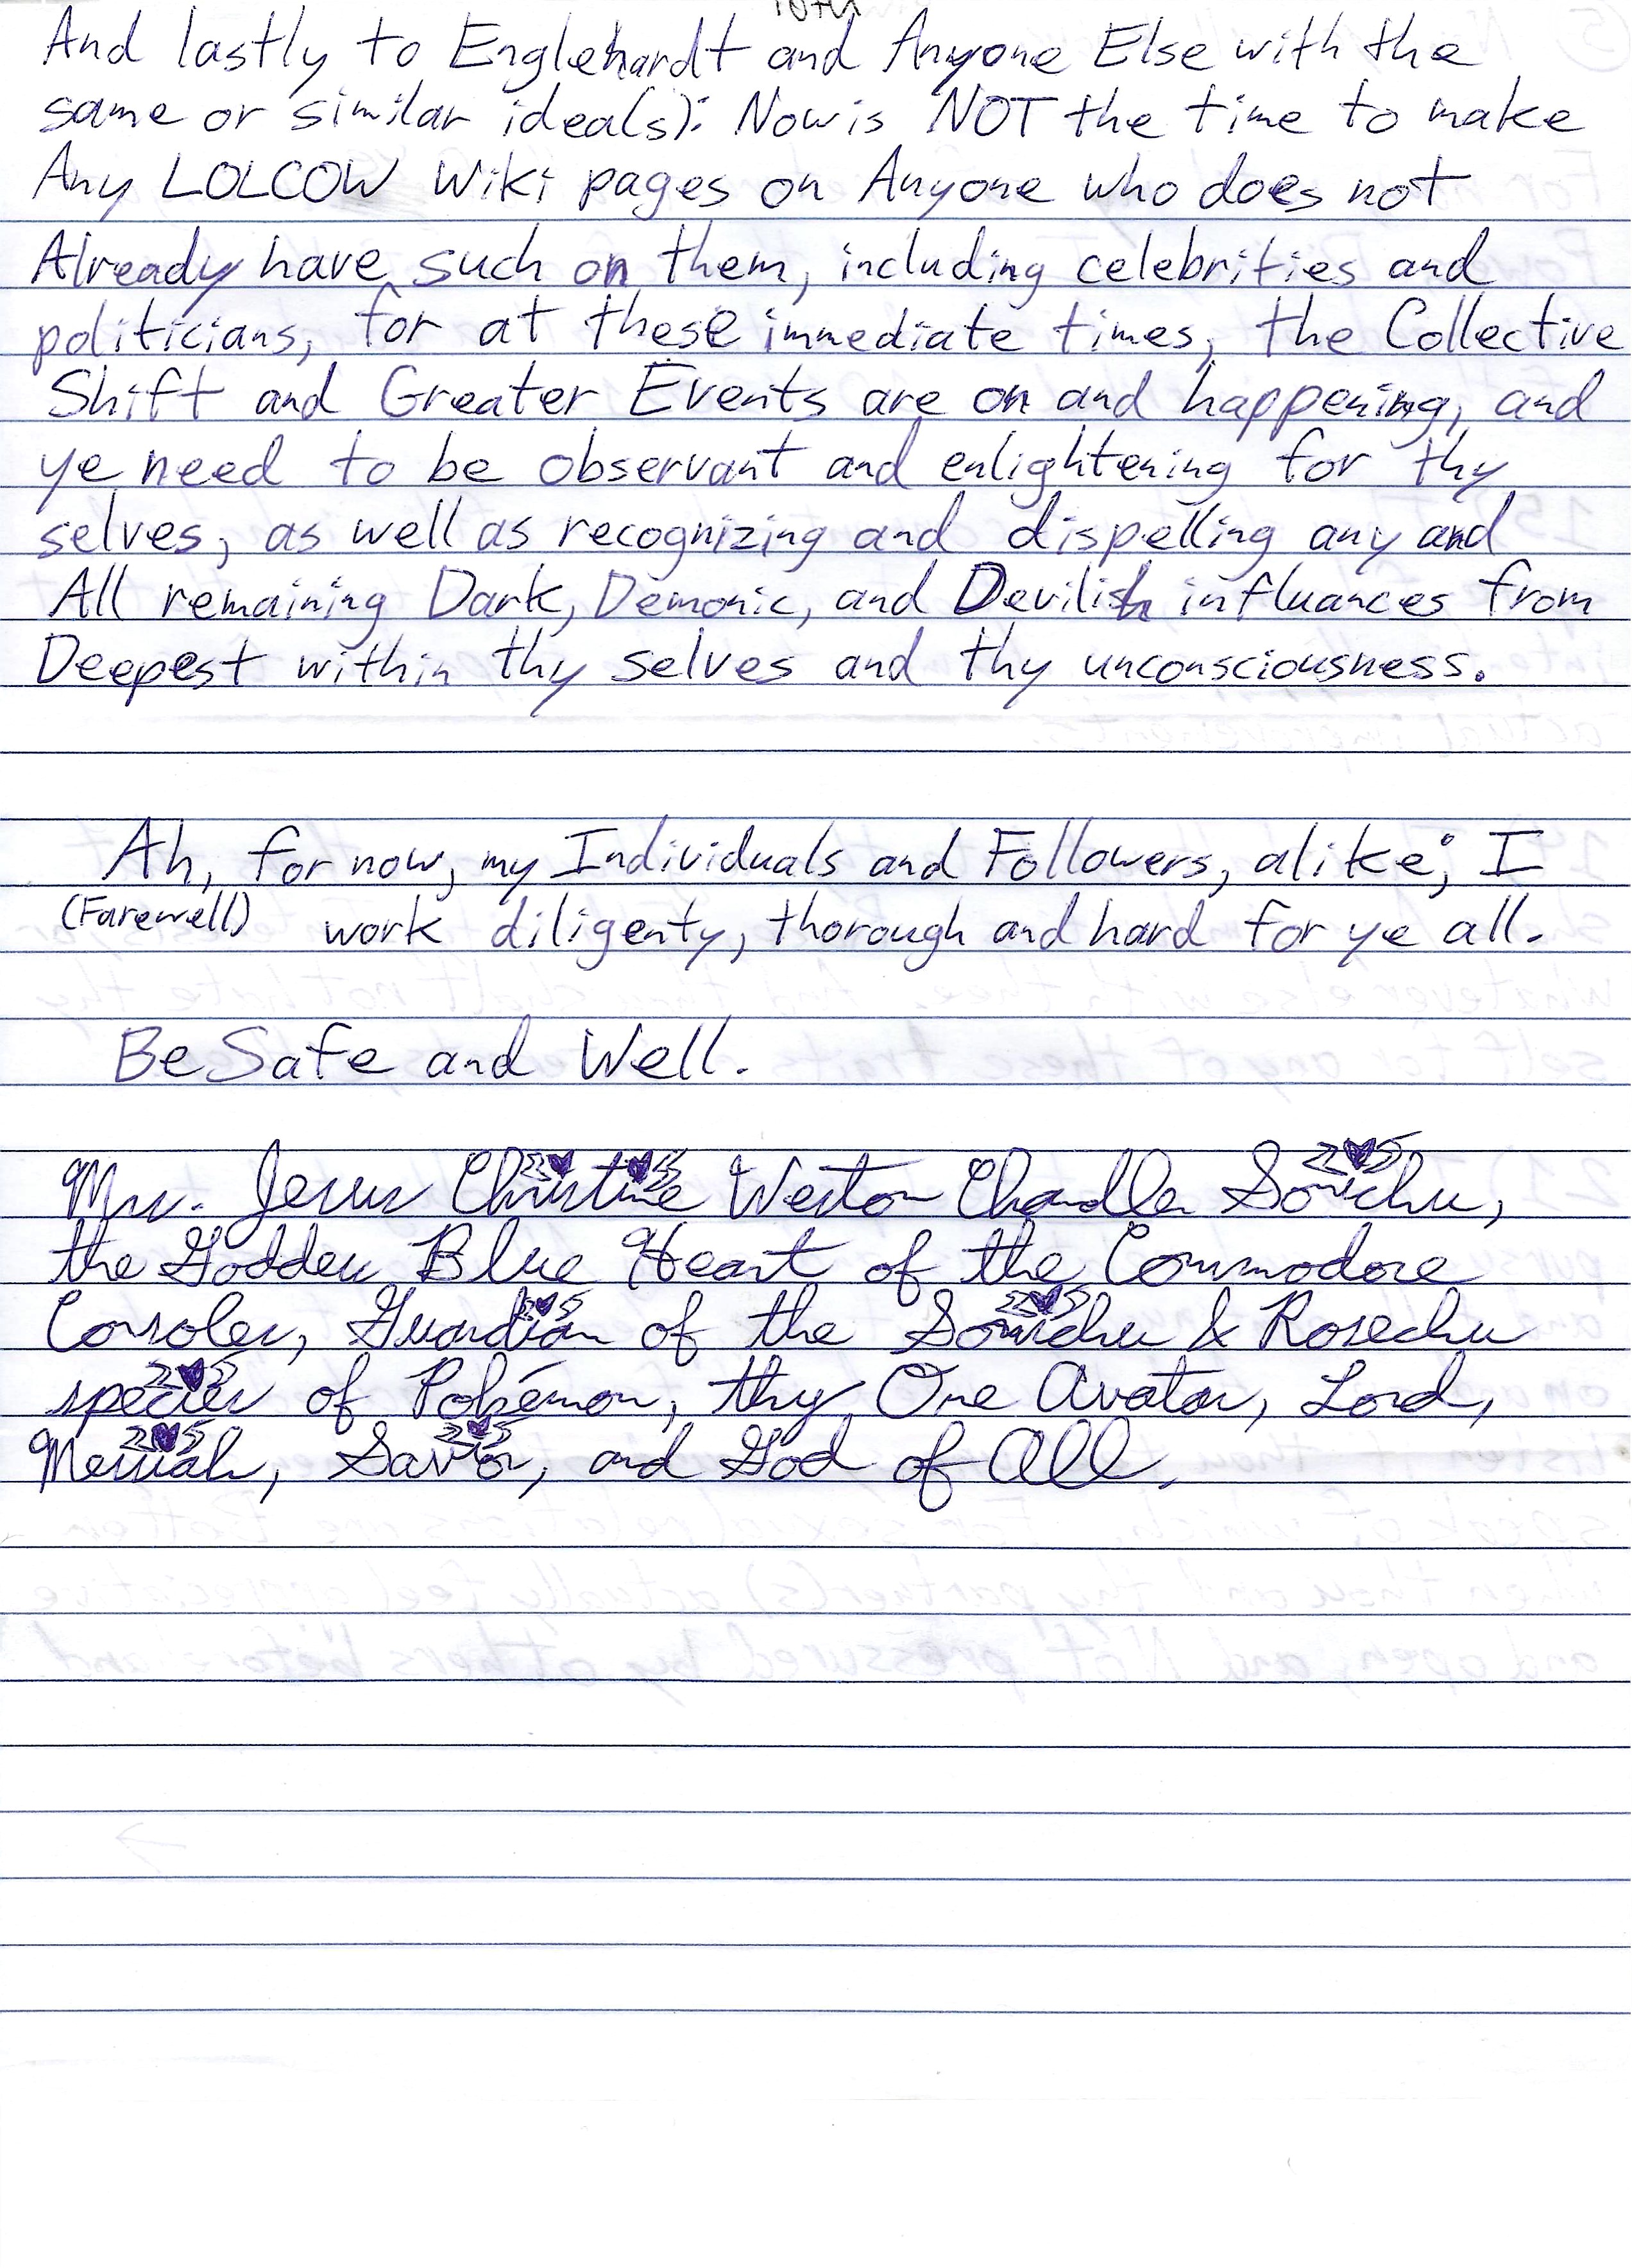 10th
And lastly to Englehardt and Anyone Else with the
same or similar idea(s): Now is NOT the time to make
Any LOLCOW Wiki pages on Anyone who does not
Already have such on them, including celebrities and
politicians, for at these immediate times, the Collective
Shift and Greater Events are on and happening, and
ye need to be observant and enlightening for thy
selves, as well as recognizing and dispelling any and
All remaining Dark, Demonic, and Devilish influances from
Deepest within thy selves and thy unconsciousness.
Ah, for now, my Individuals and Followers, alike; I
(Farewell) work diligenty, thorough and hard for ye all.
Be Safe and Well.
Mrs. Jesus Christine Weston Chandler Sonichu,
the Goddess Blue Heart of the Commodore
Consoles, Guardian of the Sonichu & Rosechu
species of Pokémon, thy One Avatar, Lord,
Messiah, Savior, and God of All.